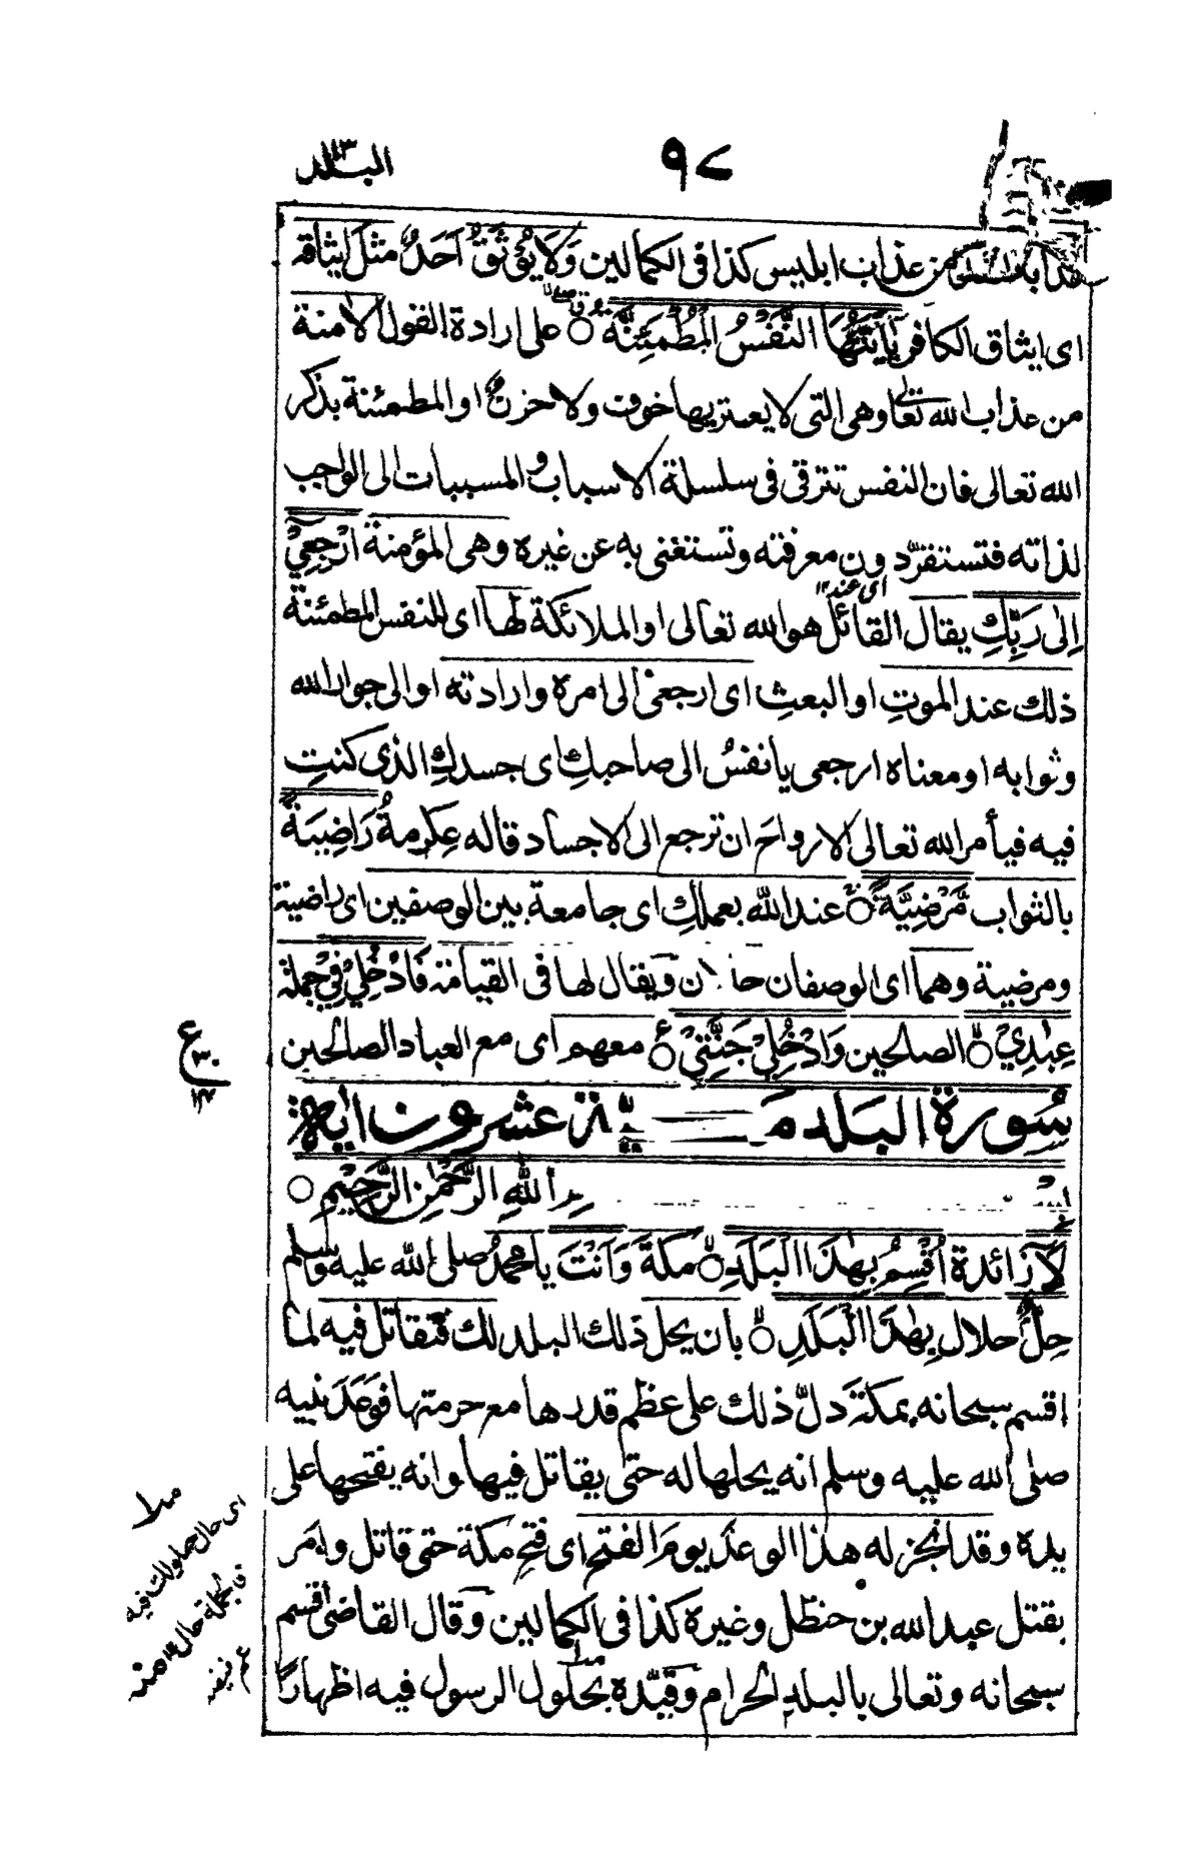 ٩٧
البلد
من عذاب ابليس كذا فى الكمالين وَلَا يُوْثَقُ اَحَدٌ مثل ايثاقه
اى ايثاق الكافر يٰٓاَيَّتُهَا النَّفْسُ الْمُطْمَئِنَّةُ على ارادة القول الامنة
من عذاب الله تعالى وهى التى لا يعتريها خوف ولا حزن او المطمئنة بذكر
الله تعالى فان النفس تترقى فى سلسلة الاسباب و المسببات الى الواجب
لذاته فتستفرد ون معرفته وتستغنى به عن غيره وهى المؤمنة ارْجِعِيْٓ
اى عند ١٢
اِلٰى رَبِّكِ يقال القائل هو الله تعالى او الملائكة لها اى للنفس المطمئنة
ذلك عند الموتِ او البعثِ اى ارجعى الى امره وارادته او الى جوار الله
وثوابه او معناه ارجعى يا نفسُ الى صاحبكِ اى جسدكِ الذى كنتِ
فيه فيأمر الله تعالى الارواحَ ان ترجع الى الاجساد قاله عِكرمةُ رَاضِيَةً
بالثواب مَّرْضِيَّةً عند الله بعملكِ اى جامعة بين الوصفين اى راضية
ومرضية وهما اى الوصفان حالان ويقال لها فى القيامة فَادْخُلِيْ فِيْ جملة
عِبٰدِيْ الصالحين وَادْخُلِيْ جَنَّتِيْ معهم اى مع العباد الصالحين
ع
٣٠
سُورة البَلد عشرون اية
الله الرَّحْمٰنِ الرَّحِيْمِ
لَآ زائدة اُقْسِمُ بِهٰذَا الْبَلَدِ مكة وَاَنْتَ يا محمدُ صلى الله عليه وسلم
حِلٌّ حلال بِهٰذَا الْبَلَدِ بأن يحل ذلك البلد لك فتقاتل فيه لما
اقسم سبحانه بمكةَ دلّ ذلك على عظم قدرها مع حرمتها فوَعَدَ نبيه
صلى الله عليه وسلم انه يحلها له حتى يقاتل فيها وانه يفتحها على
يده وقد انجز له هذا الوعدَ يومَ الفتح اى فتح مكة حتى قاتل وامر
بقتل عبد الله بن حنظل وغيره كذا فى الكمالين وقال القاضى اقسم
سبحانه وتعالى بالبلدِ الحرام وقيّده بحلول الرسول فيه اظهارًا
اى حال حلولك فيه
فالجملة حال ١٢ منه